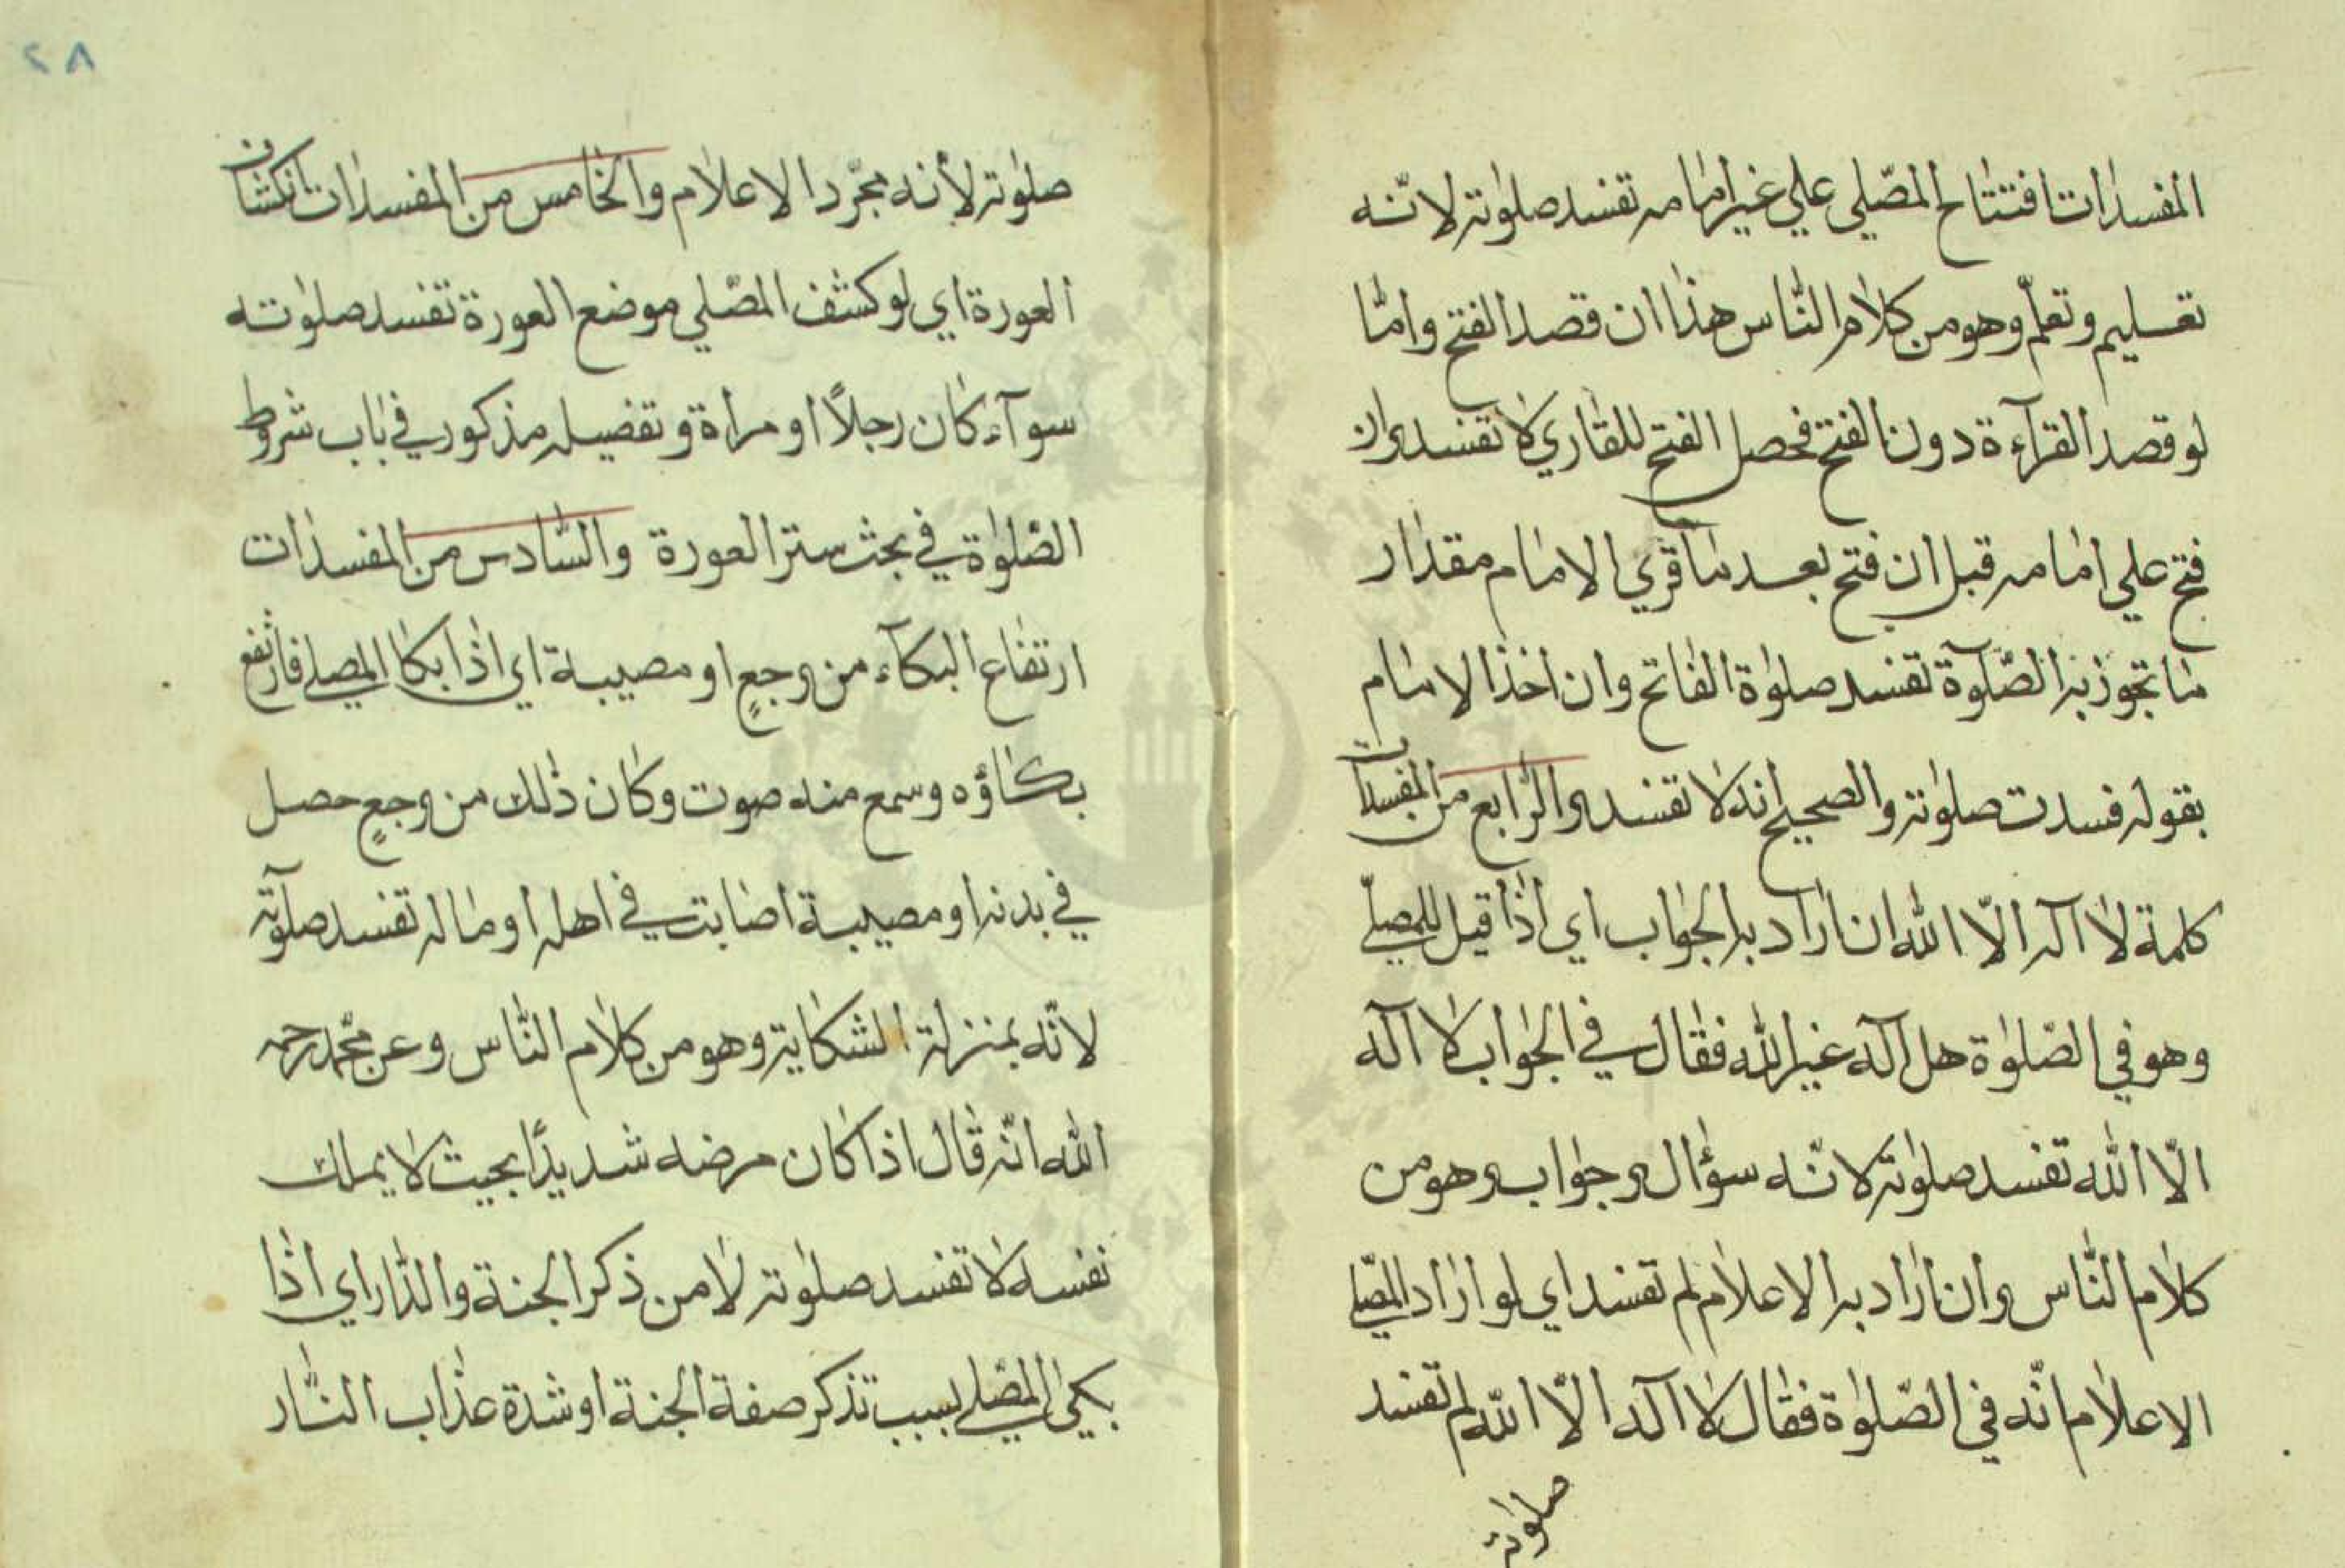 المفسدات افتتاح المصّلي علي غير امامه تفسد صلوٰته لانّه
تعسليم وتعلّم وهو من كلام النّاس هذا ان قصد الفتح وامّا
لو قصد القرآءة دون الفتح فحصل الفتح للقاري لا تفسد وان
فتح علي امامه قبل ان فتح بعد ما قري الامام مقدار
ما تجوز به الصّلوة تفسد صلوٰة الفاتح وان اخذ الامام
بقوله فسدت صلوٰته والصحيح انه لا تفسد والرّابع من المفسدات
كلمة لا آله الّا الله ان اراد به الجواب اي اذا قيل للمصلّي
وهو في الصّلوٰة هل آله غير الله فقال في الجواب لا آله
الّا الله تفسد صلوٰته لانّه سؤال وجواب وهو من
كلام النّاس وان اراد به الاعلام لم تفسد اي لو اراد المصّلي
الاعلام انّه في الصّلوٰة فقال لا آله الّا الله لم تفسد
صلوٰته
٢٨
صلوٰته لأنه مجّرد الاعلام والخامس من المفسدات انكشاف
العورة اي لو كشف المصّلي موضع العورة تفسد صلوٰته
سوآء كان رجلاً او مراة وتفضيله مذكور في باب شروط
الصّلوٰة في بحث ستر العورة والسّادس من المفسدات
ارتفاع البكآء من وجعٍ او مصيبة اي اذا بكا المصلي فارتفع
بكاؤه وسمع منه صوت وكان ذلك من وجعٍ حصل
في بدنه او مصيبة اصابت في اهله او ماله تفسد صلوٰته
لانّه بمنزلة الشكاية وهو من كلام النّاس وعن محّمد رحمه
الله انّه قال اذا كان مرضه شديدًا بحيث لا يملك
نفسه لا تفسد صلوٰته لا من ذكر الجنة والنّار اي اذا
بكىٰ المصّلي بسبب تذكر صفة الجنة او شدة عذاب النّار